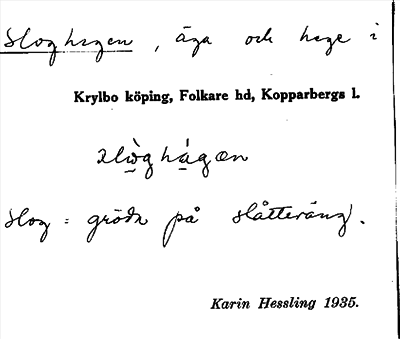 Sloghagen, äga och hage i
Krylbo köping, Folkare hd, Kopparbergs l.
slòghágən
slog = gröda på slåtteräng.
Karin Hessling 1935.